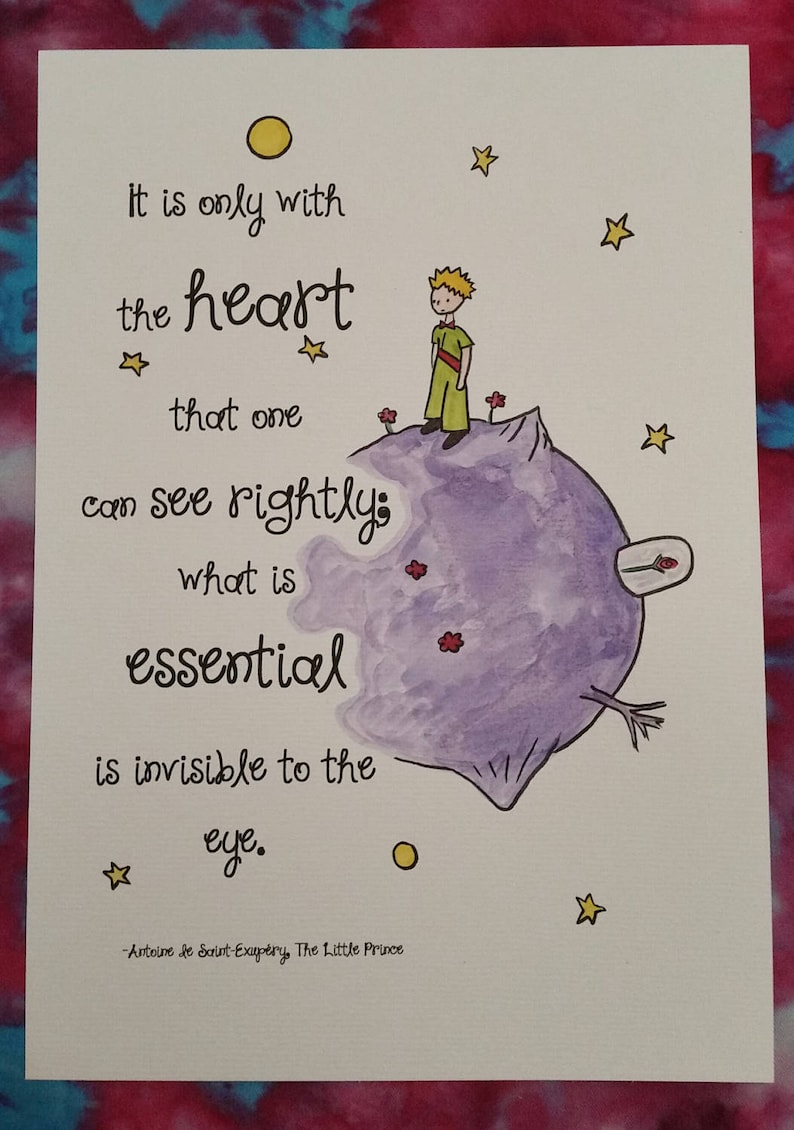 It is only with
the heart
that one
can see rightly;
what is
essential
is invisible to the
eye.
-Antoine de Saint-Exupéry, The Little Prince